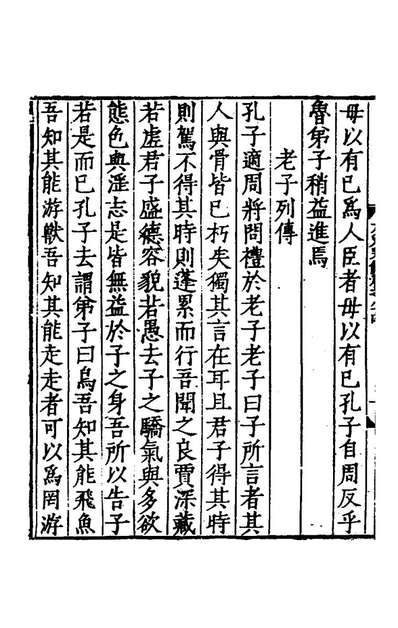 毋以有已爲人臣者毋以有已孔子自周反乎
魯弟子稍益進焉
老子列傳
孔子適周將問禮於老子老子曰子所言者其
人與骨皆已朽矣獨其言在耳且君子得其時
則駕不得其時則蓬累而行吾聞之良賈深藏
若虛君子盛德容貌若愚去子之驕氣與多欲
態色與淫志是皆無益於子之身吾所以告子
若是而已孔子去謂弟子曰鳥吾知其能飛魚
吾知其能游獸吾知其能走走者可以爲罔游